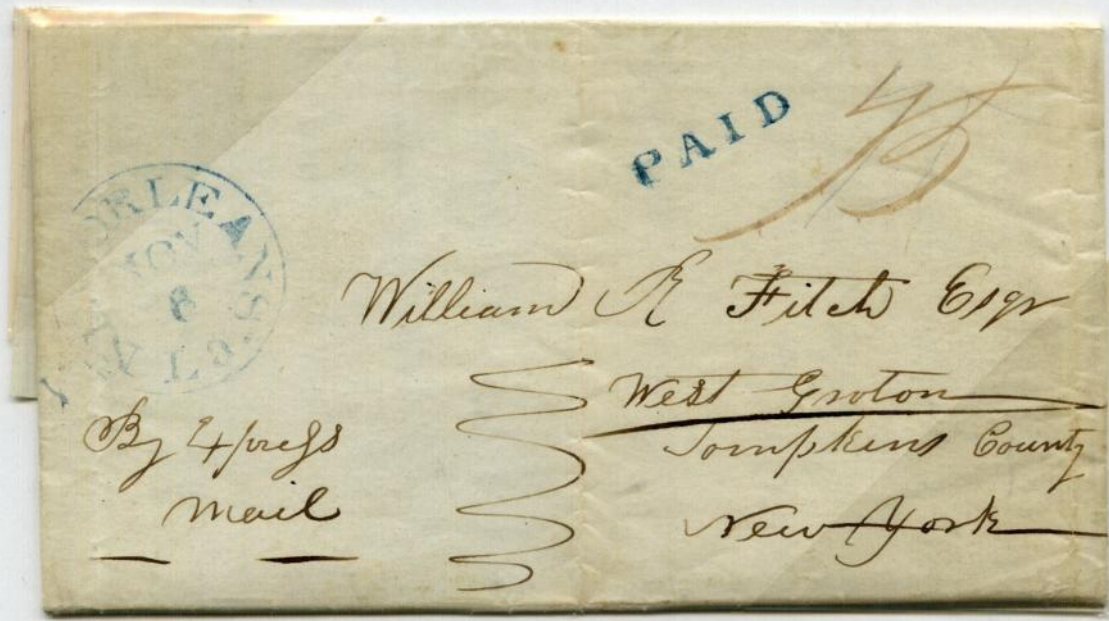 PAID 75
NEW ORLEANS La.
NOV
8
William R Fitch Esqr
West Groton
Tompkins County
New York
By Express
Mail